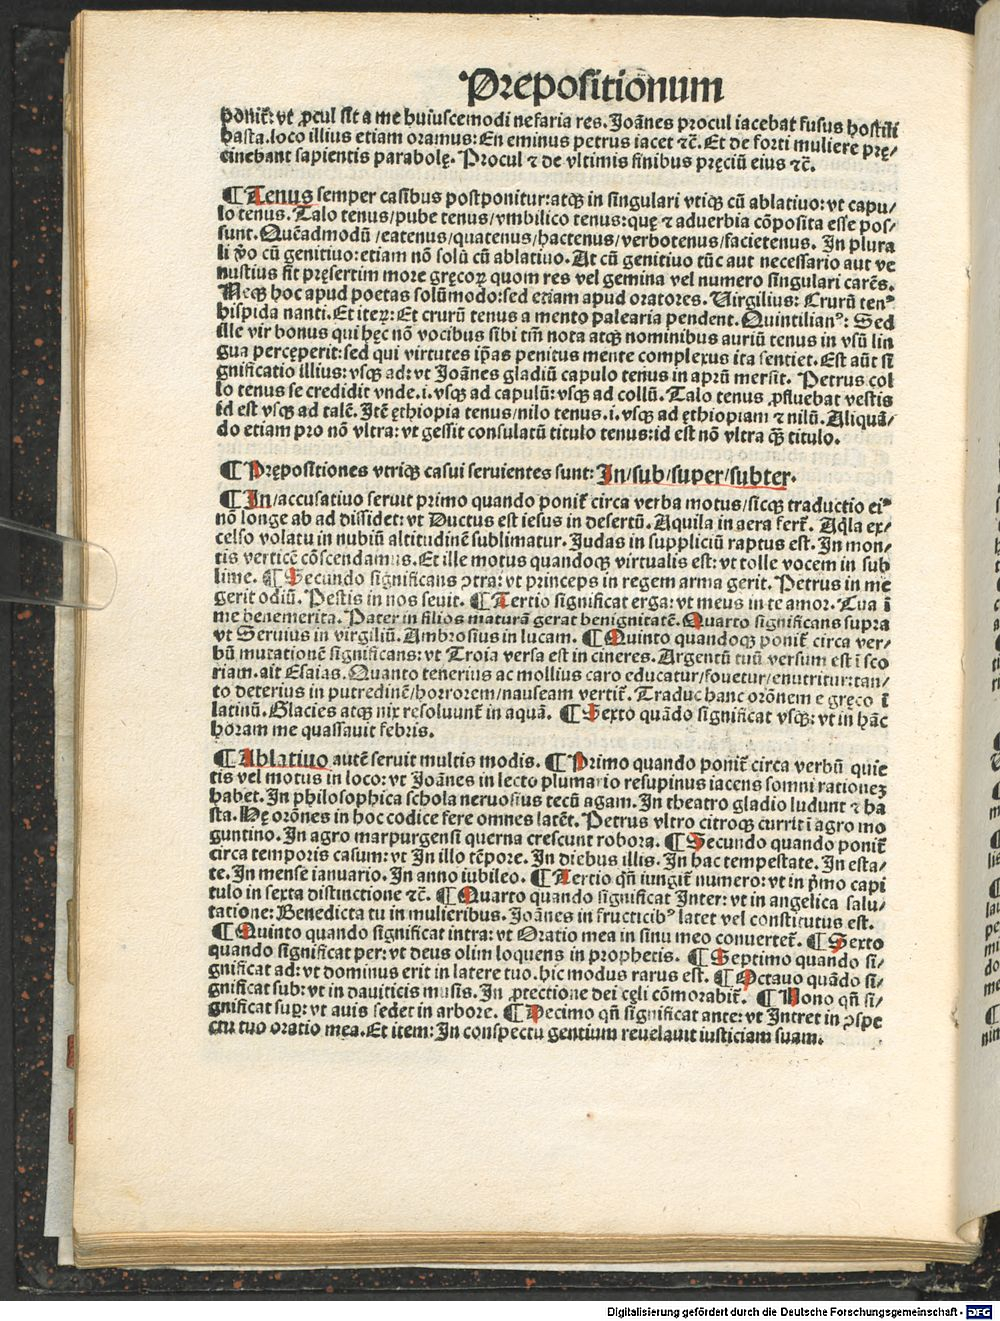 Prepositionum
ponit᷑: vt ꝓcul sit a me huiuscemodi nefaria res. Joānes procul iacebat fusus hostili
hasta. loco illius etiam oramus: En eminus petrus iacet ⁊c̄. Et de forti muliere prę/
cinebant sapientis parabolę. Procul ⁊ de vltimis finibus pręciū eius ⁊c̄.
¶ Tenus semper casibus postponitur: atqꝫ in singulari vtiqꝫ cū ablatiuo: vt capu/
lo tenus. Talo tenus/pube tenus/vmbilico tenus: quę ⁊ aduerbia cōposita esse pos/
sunt. Quēadmodū /eatenus/quatenus/hactenus/verbotenus/facietenus. In plura
li ꝟo cū genitiuo: etiam nō solū cū ablatiuo. At cū genitiuo tūc aut necessario aut ve
nustius fit pręsertim more gręcoꝝ quom res vel gemina vel numero singulari carēs.
Neqꝫ hoc apud poetas solūmodo: sed etiam apud oratores. Virgilius: Crurū tenꝰ
hispida nanti. Et iteꝝ: Et crurū tenus a mento palearia pendent. Quintilianꝰ: Sed
ille vir bonus qui hęc nō vocibus sibi tm̄ nota atqꝫ nominibus auriū tenus in vsū lin
gua percęperit: sed qui virtutes ip̄as penitus mente complexus ita sentiet. Est aūt si
gnificatio illius: vsqꝫ ad: vt Joānes gladiū capulo tenus in aprū mersit. Petrus col
lo tenus se credidit vnde. i. vsqꝫ ad capulū: vsqꝫ ad collū. Talo tenus ꝓfluebat vestis
id est vsqꝫ ad talū. Itē ęthiopia tenus/nilo tenus. i. vsqꝫ ad ęthiopiam ⁊ nilū. Aliquā/
do etiam pro nō vltra: vt gessit consulatū titulo tenus: id est nō vltra q̄ꝫ titulo.
¶ Prępositiones vtriqꝫ casui seruientes sunt: In/sub/super/subter.
¶ In/accusatiuo seruit primo quando ponit᷑ circa verba motus/sicqꝫ traductio eiꝰ
nō longe ab ad dissidet: vt Ductus est iesus in desertū. Aquila in aera fert᷑. Aq̇la ex/
celso volatu in nubiū altitudinē sublimatur. Judas in suppliciū raptus est. In mon/
tis verticē cōscendamus. Et ille motus quandoqꝫ virtualis est: vt tolle vocem in sub
lime. ¶ Secundo significans ꝯtra: vt princeps in regem arma gerit. Petrus in me
gerit odiū. Pestis in nos seuit. ¶ Tertio significat erga: vt meus in te amor. Tua ī
me benemerita. Pater in filios maturā gerat benignitatē. Quarto significans supra
vt Seruius in virgiliū. Ambrosius in lucam. ¶ Quinto quandoqꝫ ponit᷑ circa ver/
bū mutationē significans: vt Troia versa est in cineres. Argentū tuū versum est ī sco
riam. ait Esaias. Quanto tenerius ac mollius caro educatur/fouetur/enutritur: tan/
to deterius in putredinē/horrorem/nauseam vertit᷑. Traduc hanc orōnem e gręco ī
latinū. Glacies atqꝫ nix resoluunt᷑ in aquā. ¶ Sexto quādo significat vsqꝫ: vt in hāc
horam me quassauit febris.
¶ Ablatiuo autē seruit multis modis. ¶ Primo quando ponit᷑ circa verbū quie
tis vel motus in loco: vt Joānes in lecto plumario resupinus iacens somni rationeꝫ
habet. In philosophica schola neruosius tecū agam. In theatro gladio ludunt ⁊ ha
sta. Hę orōnes in hoc codice fere omnes latēt. Petrus vltro citroqꝫ currit ī agro mo
guntino. In agro marpurgensi querna crescunt robora. ¶ Secundo quando ponit᷑
circa temporis casum: vt In illo tēpore. In diebus illis. In hac tempestate. In esta/
te. In mense ianuario. In anno iubileo. ¶ Tertio qn̄ iungit᷑ numero: vt in p̄mo capi
tulo in sexta distinctione ⁊c̄. ¶ Quarto quando significat Inter: vt in angelica salu/
tatione: Benedicta tu in mulieribus. Joānes in fructicibꝰ latet vel constitutus est.
¶ Quinto quando significat intra: vt Oratio mea in sinu meo conuertet᷑. ¶ Sexto
quando significat per: vt deus olim loquens in prophetis. ¶ Septimo quando si/
gnificat ad: vt dominus erit in latere tuo. hic modus rarus est. ¶ Octauo quādo si/
gnificat sub: vt in dauiticis musis. In ꝓtectione dei cęli cōmorabit᷑. ¶ Nono qn̄ si/
gnificat suꝑ: vt auis sedet in arbore. ¶ Decimo qn̄ significat ante: vt Intret in ꝯspe
ctu tuo oratio mea. Et item: In conspectu gentium reuelauit iusticiam suam.
Digitalisierung gefördert durch die Deutsche Forschungsgemeinschaft - DFG